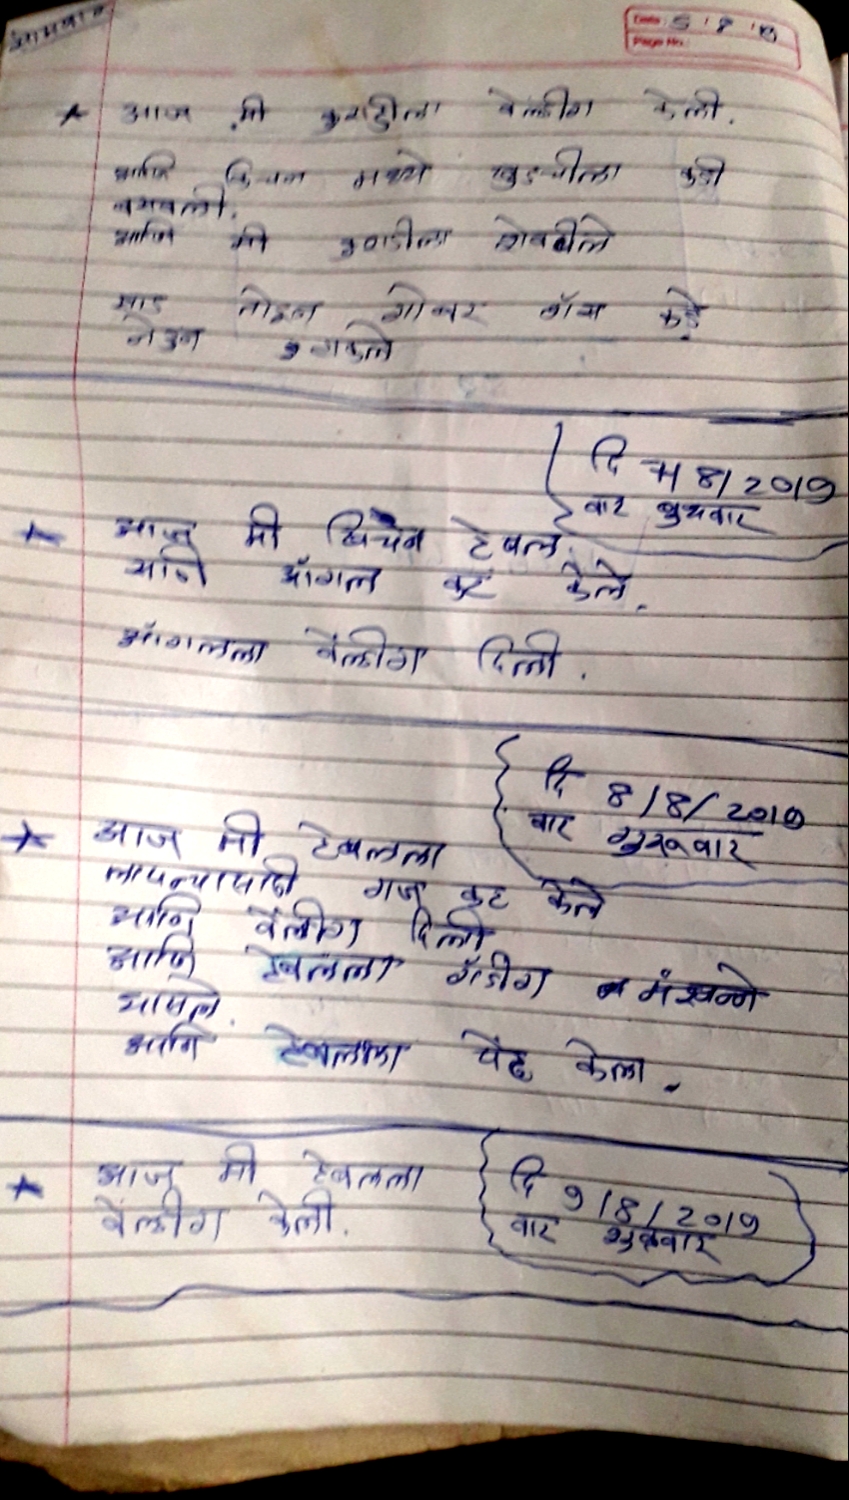 सोमवार
Date: 5 / 8 / 19
Page No.:
★ आज मी कुराडीला वेल्डींग केली.
आणि किचन मध्ये खुडचीला कडी
बसवली.
आणि मी कुराडीला शेवटीले
झाड तोडुन गोबर गॅस कडे
नेउन
दि 7/8/2019
वार बुधवार
★ आज मी खिचन टेबल
आणि अँगल कट केले.
अँगलला वेल्डींग दिली.
दि 8/8/2019
वार गुरूवार
★ आज मी टेबलला
लावन्यासाठी गज कट केले
आणि वेल्डींग दिली
आणि टेबलला ग्रँडींग मशीन्ने
घासले.
आणि टेबलला पेंट केला.
दि 9/8/2019
वार शुक्रवार
★ आज मी टेबलला
वेल्डींग केली.